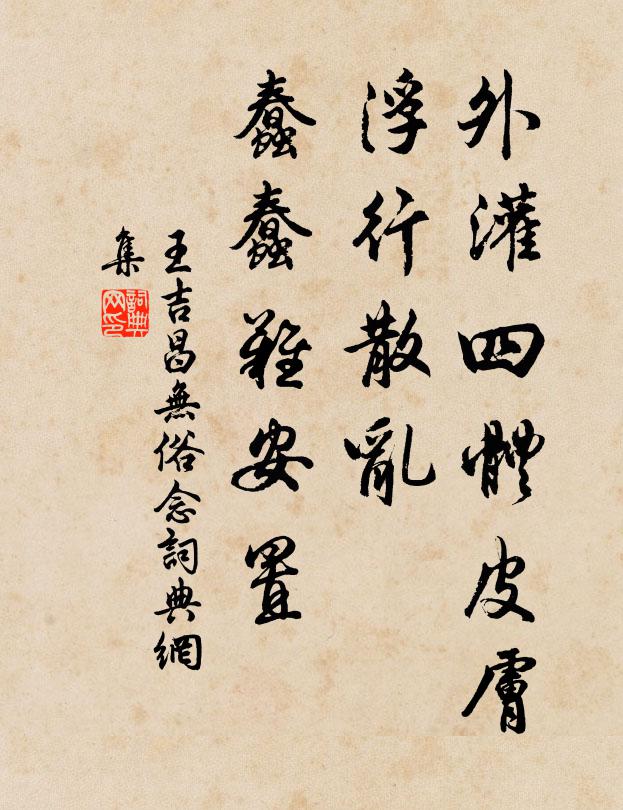 外灌四體皮膚
浮行散亂
蠢蠢難安置
王吉昌無俗念詞典網
集
詞典網印